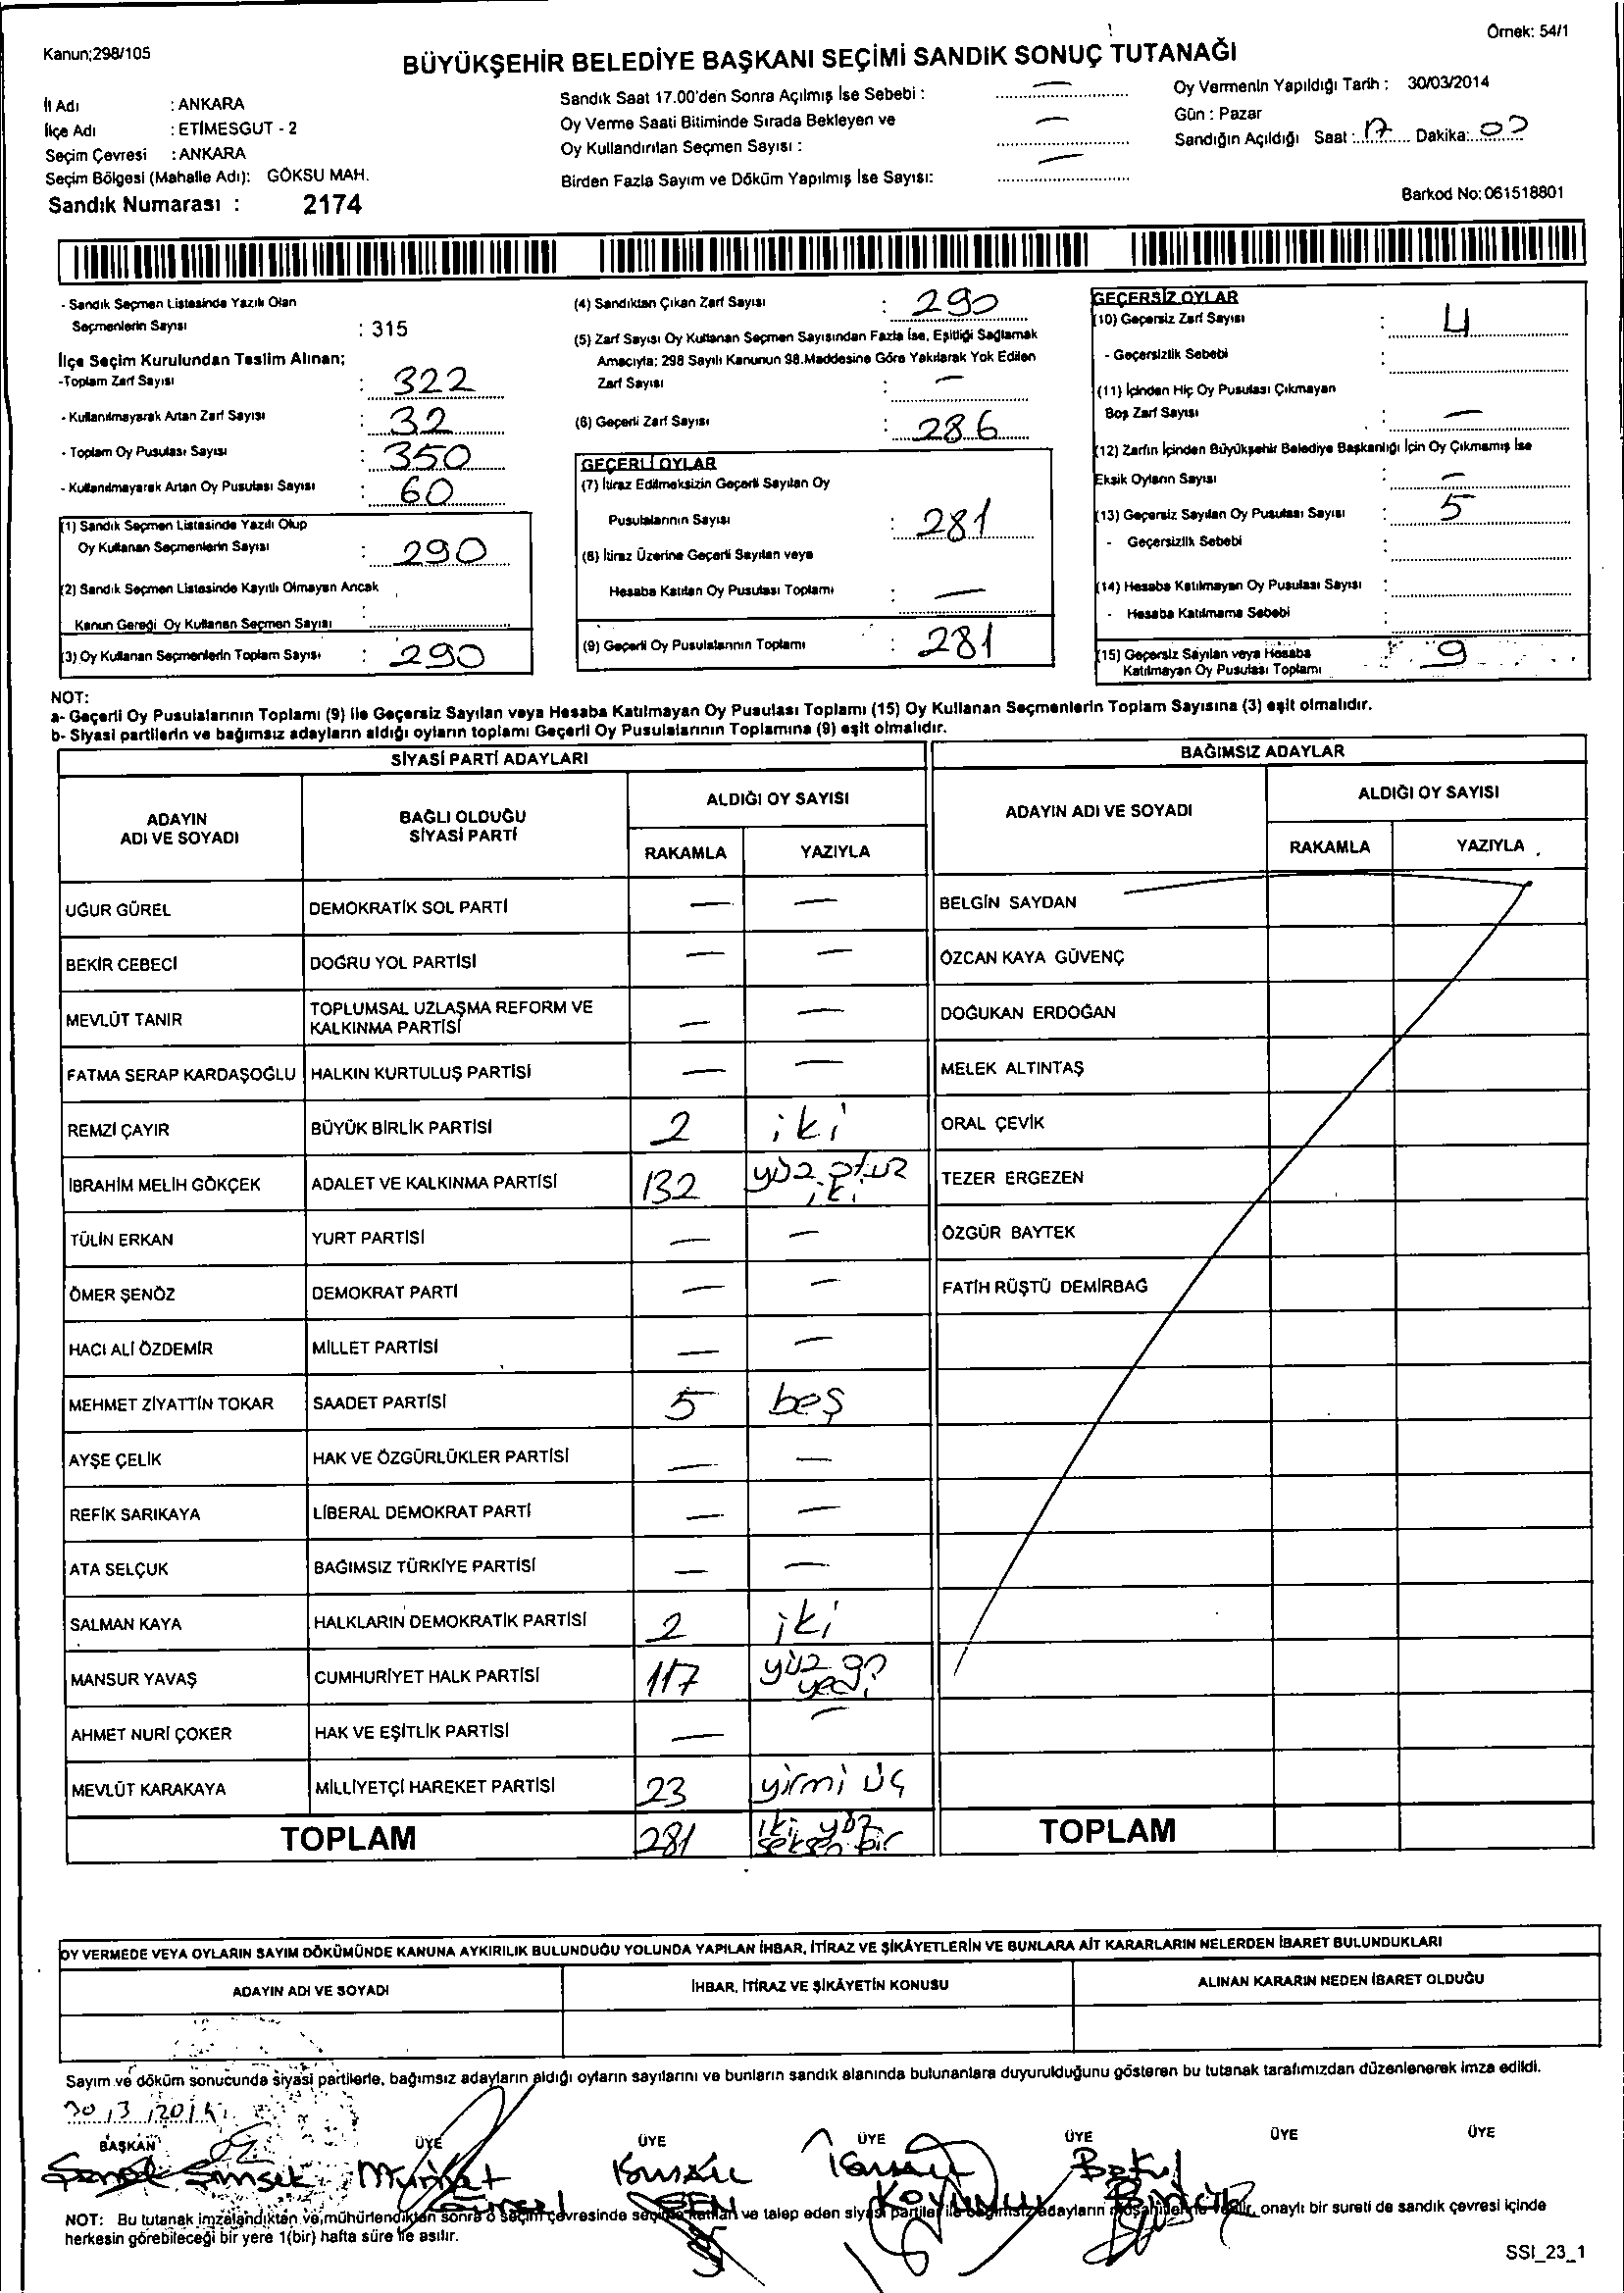 Kanun;298/105
Örnek: 54/1
BÜYÜKŞEHİR BELEDİYE BAŞKANI SEÇİMİ SANDIK SONUÇ TUTANAĞI
İl Adı : ANKARA
İlçe Adı : ETİMESGUT - 2
Seçim Çevresi : ANKARA
Seçim Bölgesi (Mahalle Adı): GÖKSU MAH.
Sandık Numarası : 2174
Sandık Saat 17.00'den Sonra Açılmış İse Sebebi : —
Oy Verme Saati Bitiminde Sırada Bekleyen ve
Oy Kullandırılan Seçmen Sayısı : —
Birden Fazla Sayım ve Döküm Yapılmış İse Sayısı: —
Oy Vermenin Yapıldığı Tarih : 30/03/2014
Gün : Pazar
Sandığın Açıldığı Saat : 17 Dakika: 00
Barkod No: 061518801
- Sandık Seçmen Listesinde Yazılı Olan
Seçmenlerin Sayısı : 315
İlçe Seçim Kurulundan Teslim Alınan;
-Toplam Zarf Sayısı : 322
- Kullanılmayarak Artan Zarf Sayısı : 32
- Toplam Oy Pusulası Sayısı : 350
- Kullanılmayarak Artan Oy Pusulası Sayısı : 60
(1) Sandık Seçmen Listesinde Yazılı Olup
Oy Kullanan Seçmenlerin Sayısı : 290
(2) Sandık Seçmen Listesinde Kayıtlı Olmayan Ancak
Kanun Gereği Oy Kullanan Seçmen Sayısı :
(3) Oy Kullanan Seçmenlerin Toplam Sayısı : 290
(4) Sandıktan Çıkan Zarf Sayısı : 290
(5) Zarf Sayısı Oy Kullanan Seçmen Sayısından Fazla İse, Eşitliği Sağlamak
Amacıyla; 298 Sayılı Kanunun 98.Maddesine Göre Yakılarak Yok Edilen
Zarf Sayısı : —
(6) Geçerli Zarf Sayısı : 286
GEÇERLİ OYLAR
(7) İtiraz Edilmeksizin Geçerli Sayılan Oy
Pusulalarının Sayısı : 281
(8) İtiraz Üzerine Geçerli Sayılan veya
Hesaba Katılan Oy Pusulası Toplamı : —
(9) Geçerli Oy Pusulalarının Toplamı : 281
GEÇERSİZ OYLAR
(10) Geçersiz Zarf Sayısı : 4
- Geçersizlik Sebebi :
(11) İçinden Hiç Oy Pusulası Çıkmayan
Boş Zarf Sayısı : —
(12) Zarfın İçinden Büyükşehir Belediye Başkanlığı İçin Oy Çıkmamış İse
Eksik Oyların Sayısı : —
(13) Geçersiz Sayılan Oy Pusulası Sayısı : 5
- Geçersizlik Sebebi :
(14) Hesaba Katılmayan Oy Pusulası Sayısı :
- Hesaba Katılmama Sebebi :
(15) Geçersiz Sayılan veya Hesaba
Katılmayan Oy Pusulası Toplamı : 9
NOT:
a- Geçerli Oy Pusulalarının Toplamı (9) ile Geçersiz Sayılan veya Hesaba Katılmayan Oy Pusulası Toplamı (15) Oy Kullanan Seçmenlerin Toplam Sayısına (3) eşit olmalıdır.
b- Siyasi partilerin ve bağımsız adayların aldığı oyların toplamı Geçerli Oy Pusulalarının Toplamına (9) eşit olmalıdır.
SİYASİ PARTİ ADAYLARI
ADAYIN ADI VE SOYADI
BAĞLI OLDUĞU SİYASİ PARTİ
ALDIĞI OY SAYISI
RAKAMLA YAZIYLA
UĞUR GÜREL DEMOKRATİK SOL PARTİ — —
BEKİR CEBECİ DOĞRU YOL PARTİSİ — —
MEVLÜT TANIR TOPLUMSAL UZLAŞMA REFORM VE KALKINMA PARTİSİ — —
FATMA SERAP KARDAŞOĞLU HALKIN KURTULUŞ PARTİSİ — —
REMZİ ÇAYIR BÜYÜK BİRLİK PARTİSİ 2 iki
İBRAHİM MELİH GÖKÇEK ADALET VE KALKINMA PARTİSİ 132 yüz otuz iki
TÜLİN ERKAN YURT PARTİSİ — —
ÖMER ŞENÖZ DEMOKRAT PARTİ — —
HACI ALİ ÖZDEMİR MİLLET PARTİSİ — —
MEHMET ZİYATTİN TOKAR SAADET PARTİSİ 5 beş
AYŞE ÇELİK HAK VE ÖZGÜRLÜKLER PARTİSİ — —
REFİK SARIKAYA LİBERAL DEMOKRAT PARTİ — —
ATA SELÇUK BAĞIMSIZ TÜRKİYE PARTİSİ — —
SALMAN KAYA HALKLARIN DEMOKRATİK PARTİSİ 2 iki
MANSUR YAVAŞ CUMHURİYET HALK PARTİSİ 117 yüz on yedi
AHMET NURİ ÇOKER HAK VE EŞİTLİK PARTİSİ — —
MEVLÜT KARAKAYA MİLLİYETÇİ HAREKET PARTİSİ 23 yirmi üç
TOPLAM 281 iki yüz seksen bir
BAĞIMSIZ ADAYLAR
ADAYIN ADI VE SOYADI
ALDIĞI OY SAYISI
RAKAMLA YAZIYLA
BELGİN SAYDAN
ÖZCAN KAYA GÜVENÇ
DOĞUKAN ERDOĞAN
MELEK ALTINTAŞ
ORAL ÇEVİK
TEZER ERGEZEN
ÖZGÜR BAYTEK
FATİH RÜŞTÜ DEMİRBAĞ
TOPLAM
OY VERMEDE VEYA OYLARIN SAYIM DÖKÜMÜNDE KANUNA AYKIRILIK BULUNDUĞU YOLUNDA YAPILAN İHBAR, İTİRAZ VE ŞİKÂYETLERİN VE BUNLARA AİT KARARLARIN NELERDEN İBARET BULUNDUKLARI
ADAYIN ADI VE SOYADI
İHBAR, İTİRAZ VE ŞİKÂYETİN KONUSU
ALINAN KARARIN NEDEN İBARET OLDUĞU
Sayım ve döküm sonucunda siyasi partilerle, bağımsız adayların aldığı oyların sayılarını ve bunların sandık alanında bulunanlara duyurulduğunu gösteren bu tutanak tarafımızdan düzenlenerek imza edildi.
30/3/2014
BAŞKAN ÜYE ÜYE ÜYE ÜYE ÜYE ÜYE
Şimşek Murat
NOT: Bu tutanak imzalandıktan ve mühürlendikten sonra o seçim çevresinde seçime katılan ve talep eden siyasi partiler ile bağımsız adayların müşahitlerine verilir, onaylı bir sureti de sandık çevresi içinde
herkesin görebileceği bir yere 1(bir) hafta süre ile asılır.
SSI_23_1